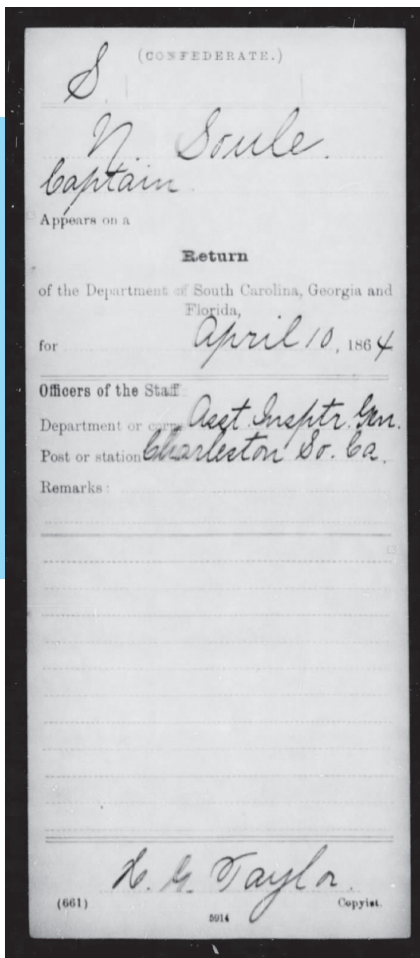 (CONFEDERATE.)
S.
N. Soule.
Captain
Appears on a
Return
of the Department of South Carolina, Georgia and
Florida,
for April 10, 1864
Officers of the Staff
Department or corps Asst. Insptr. Gen.
Post or station Charleston So. Ca.
Remarks:
H. G. Taylor.
(661) Copyist.
5914